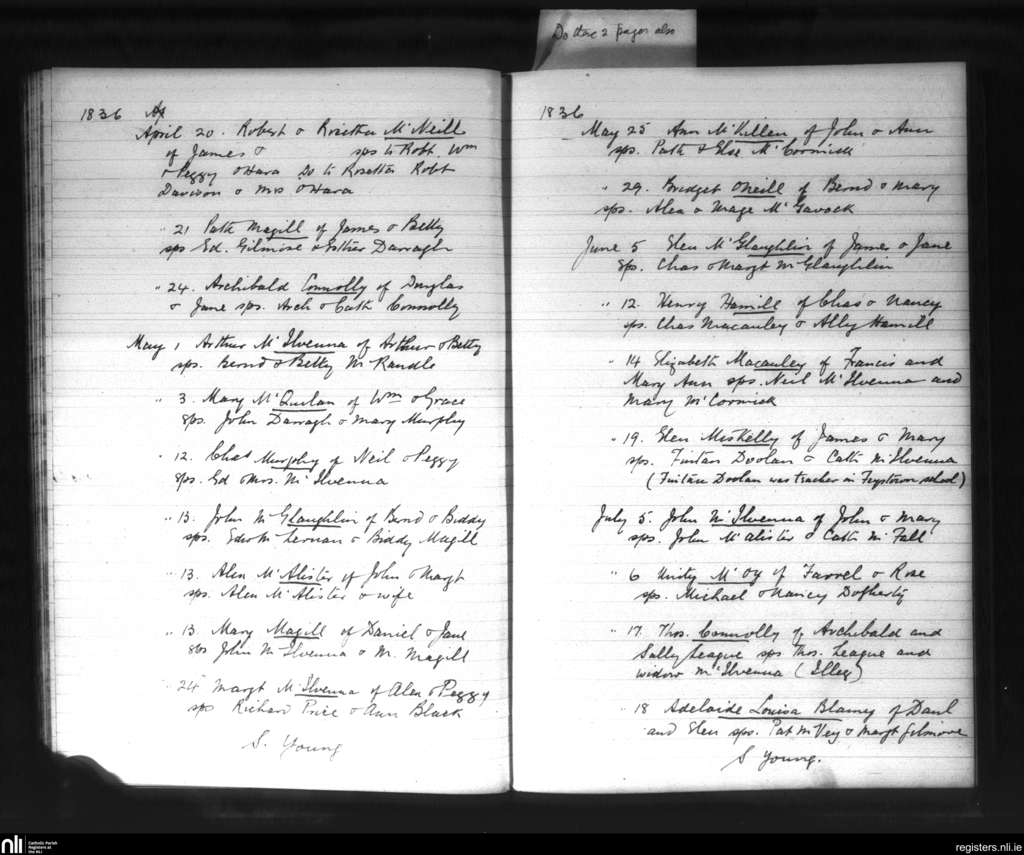 Do these 2 pages also
1836 Ap
April 20. Robert & Rosetta McNeill
of James & sps to Robt. Wm
& Peggy OHara Do to Rosetta Robt
Davison & Mrs OHara
" 21 Patk Magill of James & Betty
sps Ed. Gilmore & Esther Darragh
" 24. Archibald Connolly of Douglas
& Jane sps. Arch & Cath Connolly
May 1 Arthur McIlvenna of Arthur & Betty
sps. Bernd & Betty McRandle
" 3. Mary McQuilan of Wm & Grace
sps. John Darragh & Mary Murphy
" 12. Chas Murphy of Neil & Peggy
sps. Ed & Mrs. McIlvenna
" 13. John McGlaughlin of Bernd & Biddy
sps. Edw McLernan & Biddy Magill
" 13. Alex McAlister of John & Margt
sps. Alex McAlister & wife
" 13 Mary Magill of Daniel & Jane
sps John McIlvenna & M. Magill
" 24 Margt McIlvenna of Alex & Peggy
sps Richard Price & Ann Black
S. Young
1836
May 25 Ann McKillen of John & Ann
sps. Patk & Else McCormick
" 29. Bridget ONeill of Bernd & Mary
sps. Alex & Mage McGavock
June 5 Elen McGlaughlin of James & Jane
sps. Chas & Margt McGlaughlin
" 12. Henry Hamill of Chas & Nancy
sps. Chas Macauley & Ally Hamill
" 14 Elizabeth Macauley of Francis and
Mary Ann sps. Neil McIlvenna and
Mary McCormick
" 19. Elen Miskelly of James & Mary
sps. Fintan Doolan & Cath McIlvenna
(Fintan Doolan was teacher in Feystown school)
July 5. John McIlvenna of John & Mary
sps. John McAlister & Cath McFall
" 6 Unity McOy of Farrel & Rose
sps. Michael & Nancy Dogherty
" 17. Thos. Connolly of Archibald and
Sally League sps Thos. League and
widow McIlvenna (Illeg)
" 18 Adelaide Louisa Blaney of Danl
and Elen sps. Pat McVey & Margt Gilmore
S Young.
nli Catholic Parish
Registers at
the NLI
registers.nli.ie